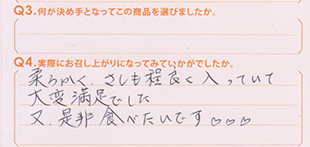 Q3.何が決め手となってこの商品を選びましたか。
Q4.実際にお召し上がりになってみていかがでしたか。
柔らかく、さしも程良く入っていて
大変満足でした
又、是非食べたいです♡♡♡